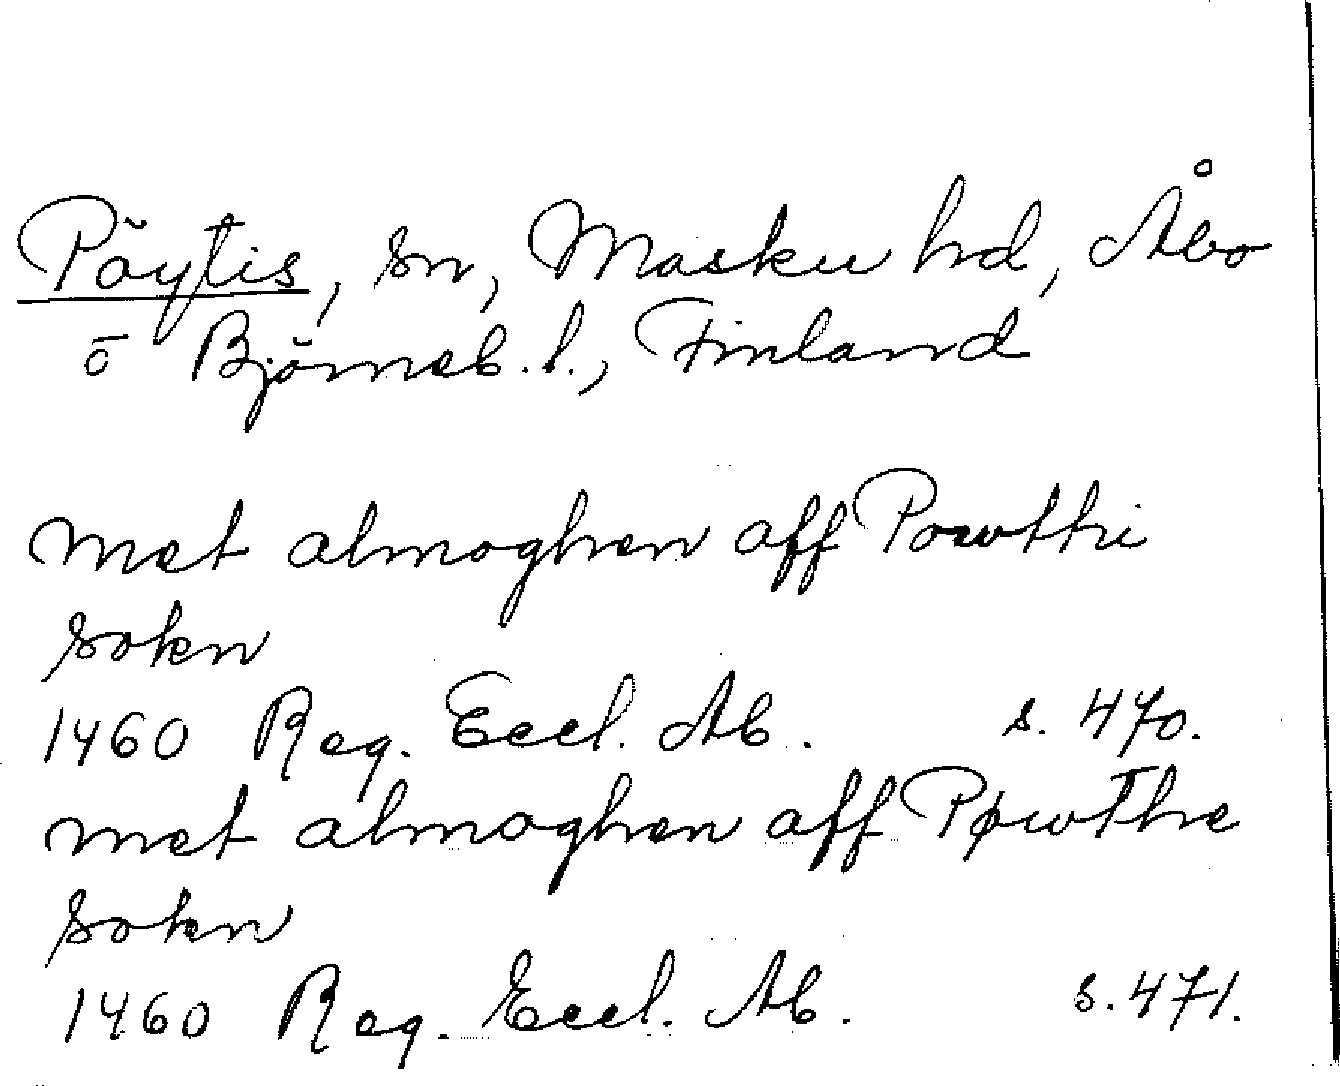 Pöytis, sn, Masku hd, Åbo
o Björneb. l., Finland
met almoghen aff Powthi
sokn
1460 Reg. Eccl. Ab. s. 470.
met almoghen aff Pøwthe
sokn
1460 Reg. Eccl. Ab. s. 471.